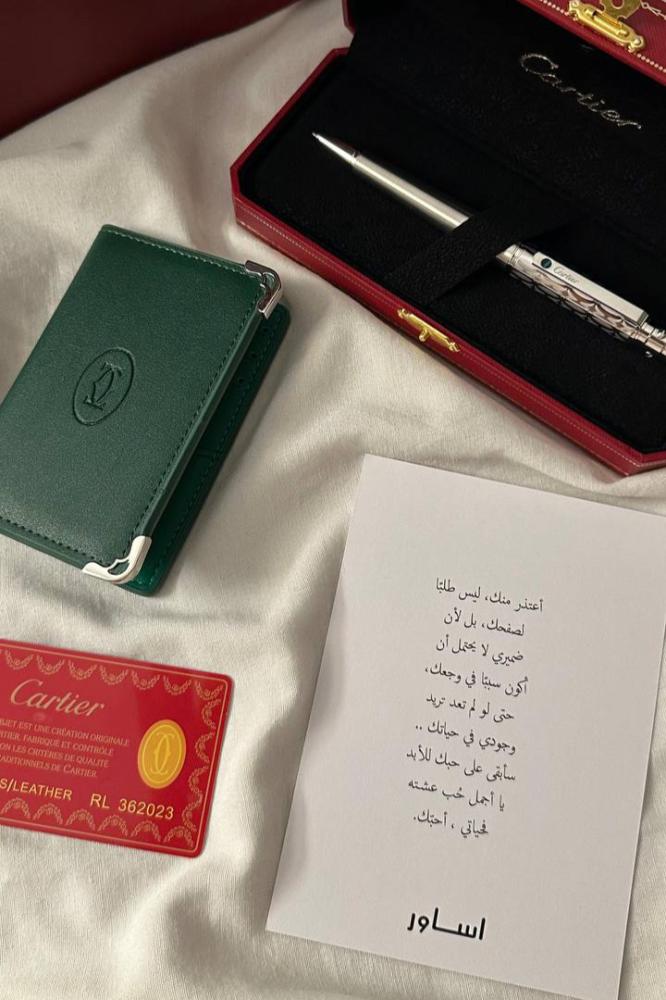 Cartier
Cartier
أعتذر منك، ليس طلبًا
لصفحك، بل لأن
ضميري لا يحتمل أن
أكون سببًا في وجعك،
حتى لو لم تعد تريد
وجودي في حياتك ..
سأبقى على حبك للأبد
يا أجمل حُب عشته
فحياتي ، أحبّك.
اساور
Cartier
BJET EST UNE CRÉATION ORIGINALE
RTIER, FABRIQUÉ ET CONTRÔLÉ
ON LES CRITÈRES DE QUALITÉ
RADITIONNELS DE CARTIER.
S/LEATHER RL 362023